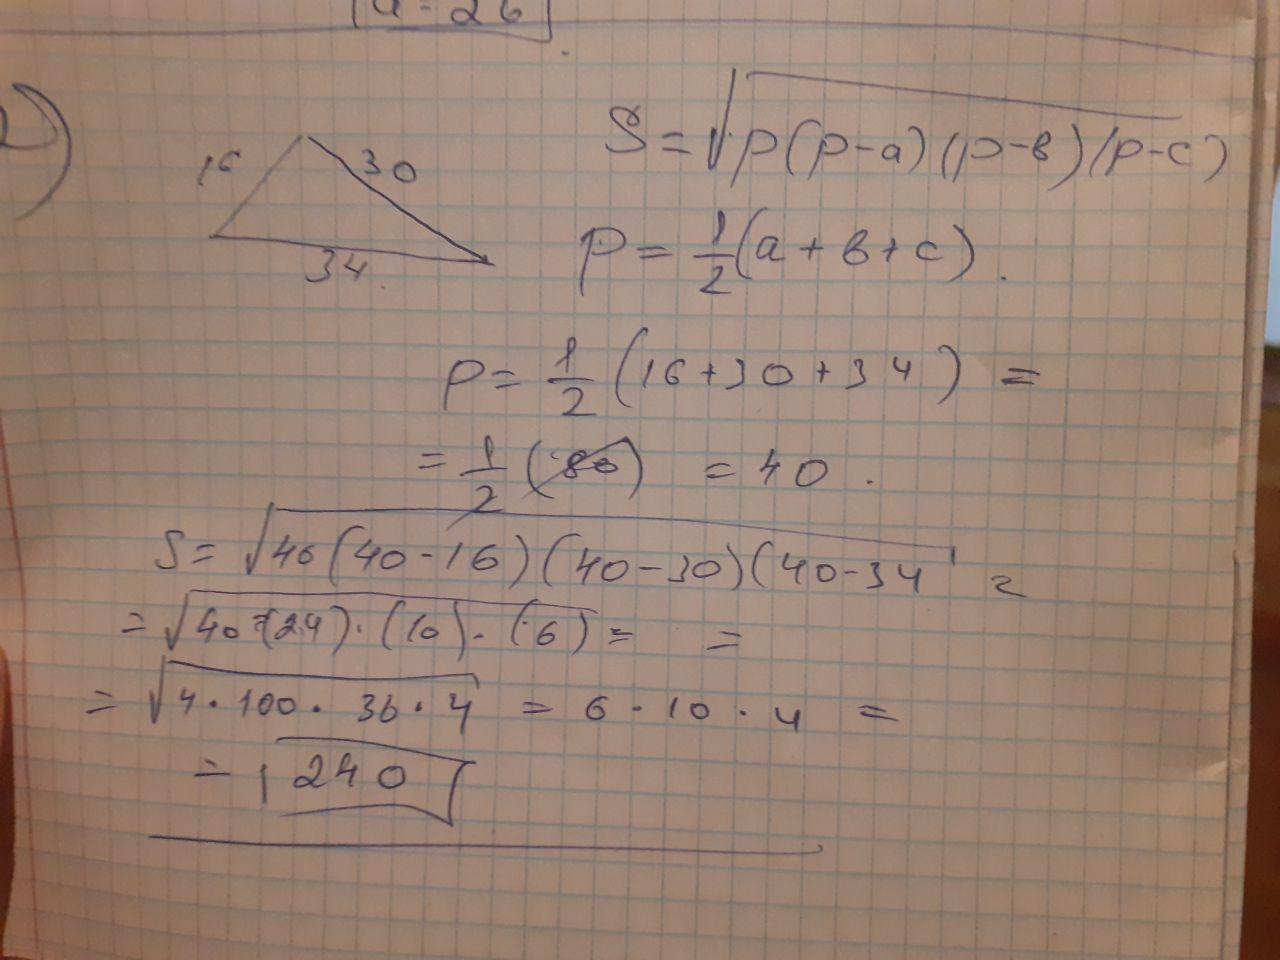 a = 26
2)
16
30
34
S = √p(p-a)(p-в)(p-c)
p = 1/2 (a + в + c).
p = 1/2 (16+30+34) =
= 1/2 (80) = 40.
S = √40(40-16)(40-30)(40-34 =
= √40·(24)·(10)·(6) = =
= √4·100·36·4 = 6·10·4 =
= 240